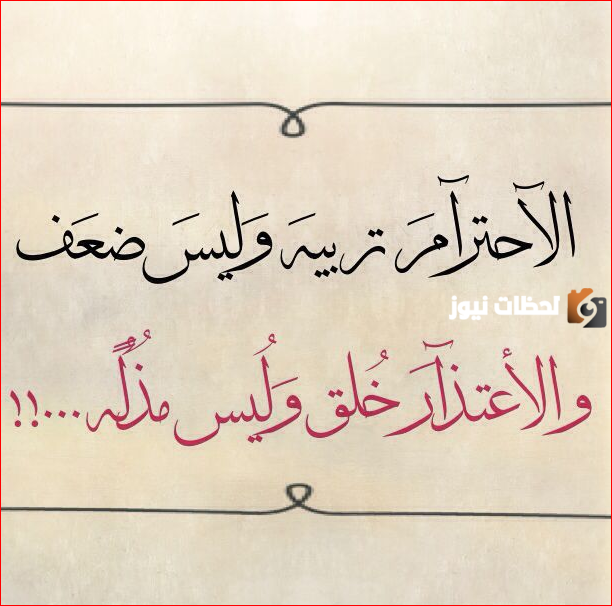 الآحترآمَ تربيهَ وَليسَ ضعَف
لحظات نيوز
والأعتذآرَ خُلق وَلُيس مذُلٌه...!!